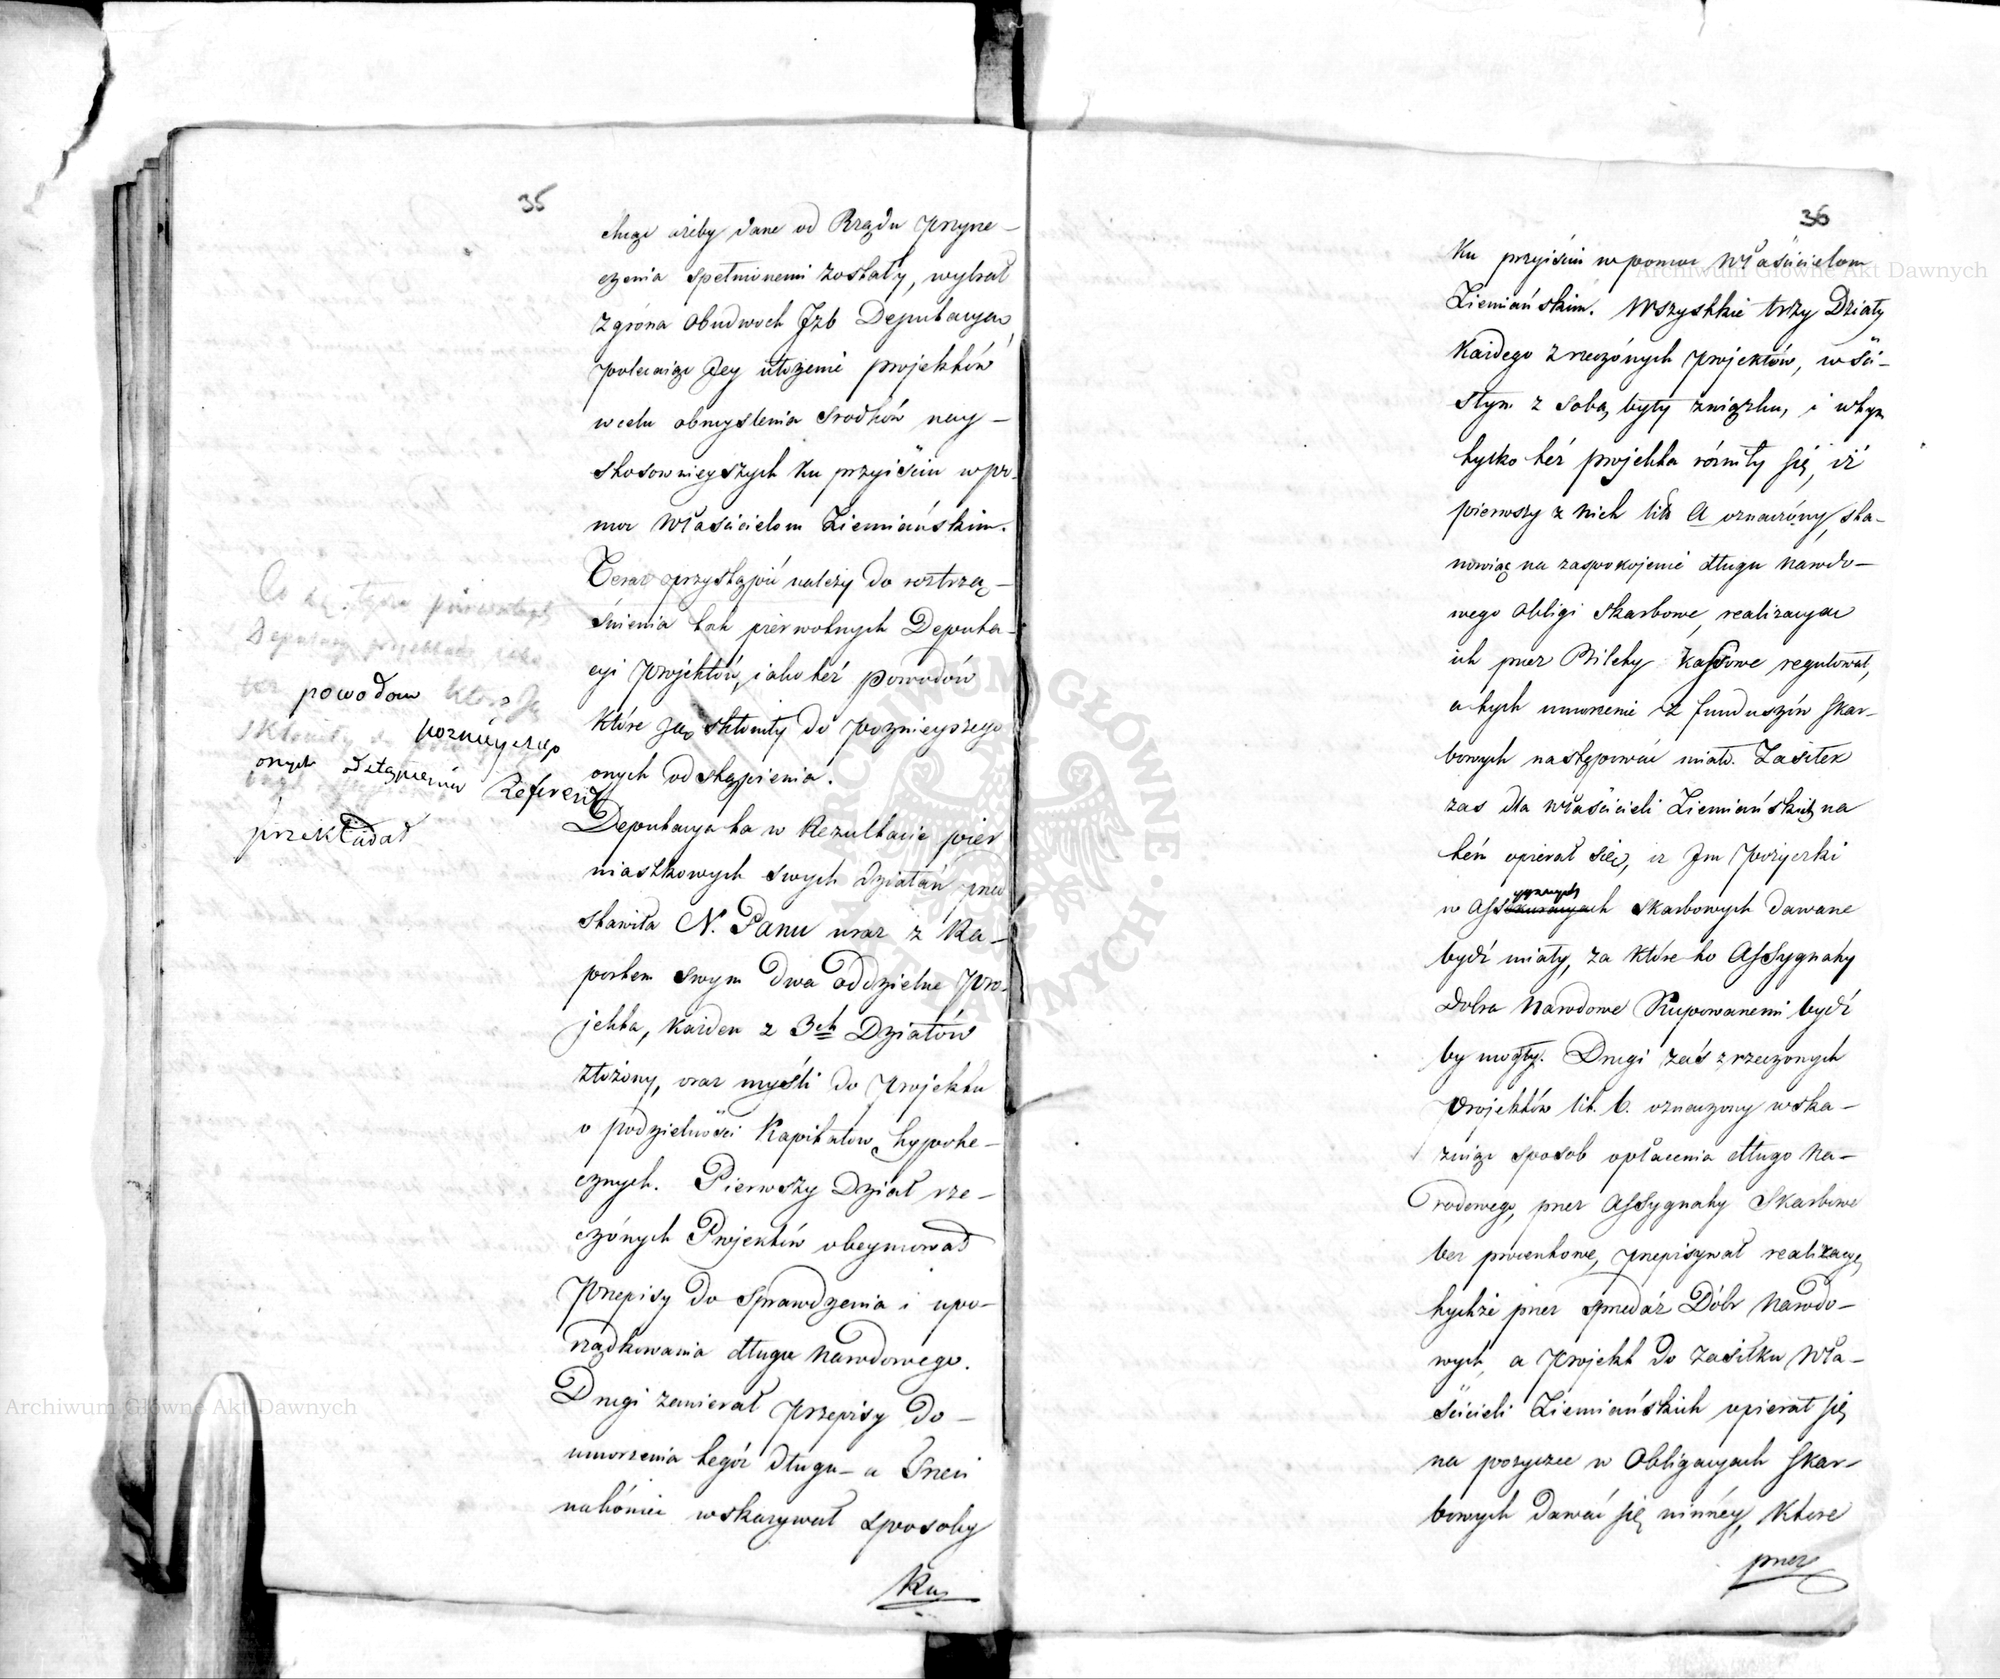 35
chcąc ażeby dane od Rządu Przyrze-
czenia spełnionemi zostały, wybrał
z grona obudwoch Jzb Deputacyą,
polecaiąc Jey ułożenie projektów
w celu obmyślenia srodków nay-
stosownieyszych ku przyiściu w po-
moc Właścicielom Ziemiańskim.
Teraz przystąpić należy do roztrzą-
śnienia tak pierwotnych Deputa-
cyi Projektów, iako też powodów
które Ją skłoniły do poznieyszego
onych odstąpienia.
Co się tycze pierwotnych
Deputacyi projektów iako
też powodow które Ją
skłoniły do poznieyszego
onych odstąpienia Referent
przekładał
Deputacya ta w Rezultacie pier
wiastkowych swych działań prze
stawiła N. Panu wraz z Ra-
portem swym dwa oddzielne Pro-
jekta, każden z 3ch Działów
złożony, oraz myśli do Projektu
o podzielności Kapitałow hypote-
cznych. Pierwszy Dział rze-
czónych Projektów obeymował
Przepisy do Sprawdzenia i upo-
rządkowania długu Narodowego.
Drugi zawierał Przepisy do-
umorzenia tegóż długu - a Trzeci
nakóniec wskazywał sposoby
Ku
36
Ku przyiściu w pomoc Właścicielom
Ziemiańskim. Wszystkie trzy Działy
Każdego z rzeczónych Projektów, w ści-
słym z sobą były związku, i w tym
tylko też projekta różniły się, iż
pierwszy z nich lit. A oznaczóny, sta-
nowiąc na zaspokojenie długu Narodo-
wego Obligi Skarbowe, realizacyą
ich przez Bilety Kassowe regulował,
a tych umorzenie z funduszów Skar-
bowych następować miało. Zasiłek
zas dla Właścicieli Ziemiańskich na
tém opierał się, iz Jm Pożyczki
w Assygnatach Skarbowych dawane
bydź miały, za które to Assygnaty
Dobra Narodowe Kupowanemi bydź
by mogły. Drugi zaś z rzeczonych
Projektów lit. b. oznaczony wska-
zuiąc sposob opłacenia długo Na-
rodowego, przez Assygnaty Skarbowe
bez procentowe, przepisywał realizacyę
tychże przez sprzedaż Dóbr Narodo-
wych, a Projekt do Zasiłku Wła-
ścicieli Ziemiańskich opierał się
na pozyczce w Obligacyach Skar-
bowych dawać się winnéy, Które
przez
Archiwum Główne Akt Dawnych
Archiwum Główne Akt Dawnych
ARCHIWUM GŁÓWNE AKT DAWNYCH